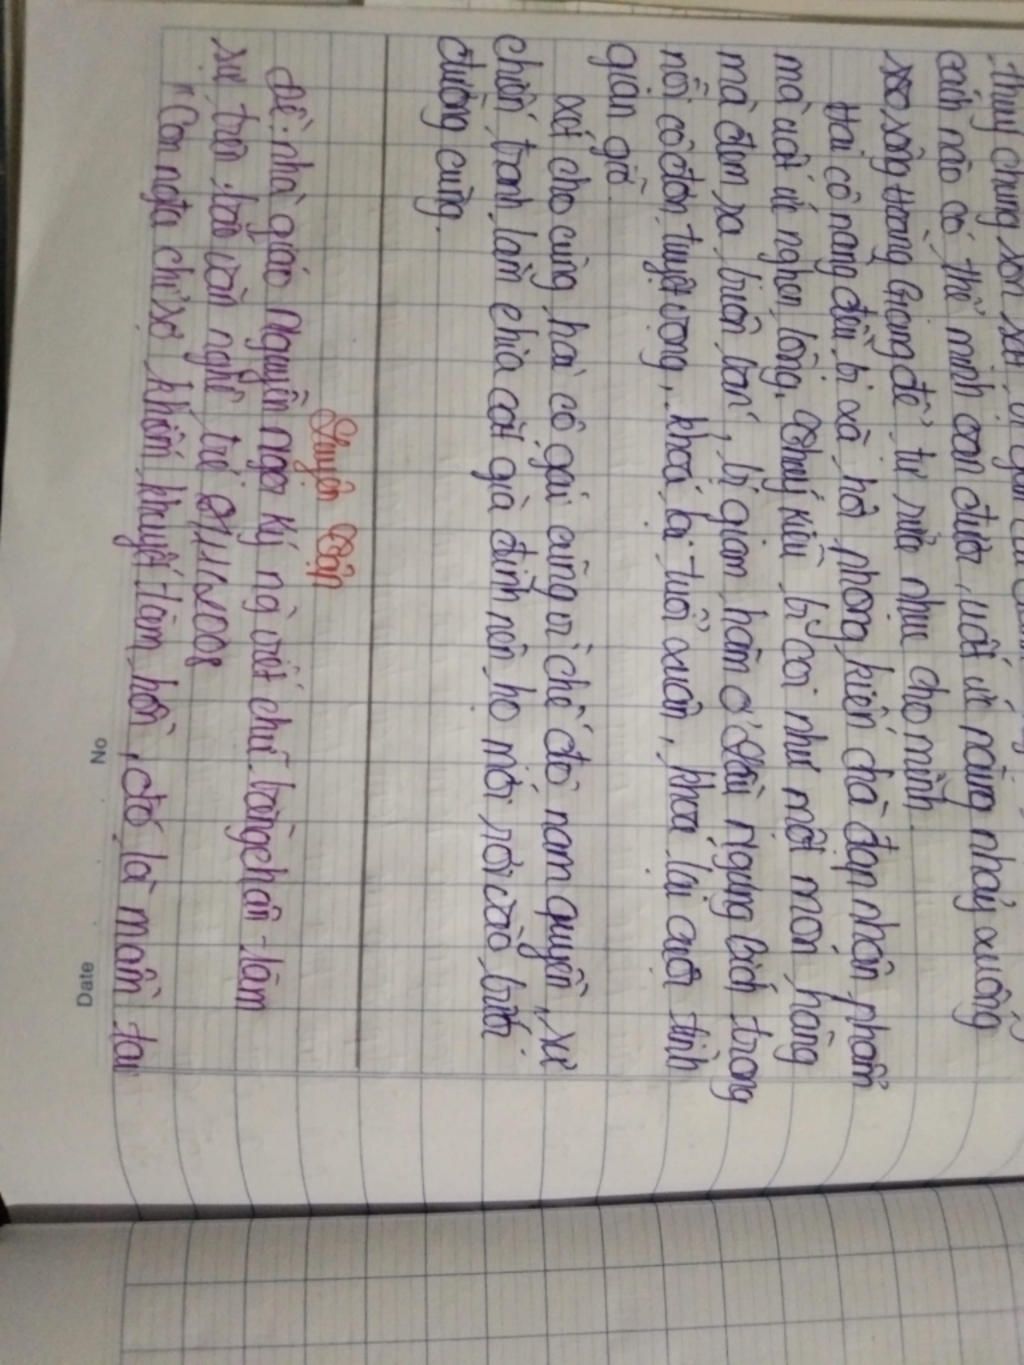 thuỷ chung son sắt, vì gìn
cách nào có thể minh oan được, uất ức nàng nhảy xuống
sông Hoàng Giang để tự rửa nhục cho mình.
Hai cô nàng đều bị xã hội phong kiến chà đạp nhân phẩm
mà uất ức nghẹn lòng. Thuý Kiều bị coi như một món hàng
mà đem ra buôn bán, bị giam hãm ở Lầu Ngưng Bích trong
nỗi cô đơn tuyệt vọng, khoá lại tuổi xuân, khoá lại cuộc tình
gián gỡ.
xét cho cùng, hai cô gái cũng vì chế độ nam quyền, vì
chiến tranh làm chia cắt gia đình nên họ mới rơi vào bước
đường cùng.
Luyện tập
Đề: nhà giáo Nguyễn Ngọc Ký ng viết chữ bằng chân tâm
sự trên báo văn nghệ trẻ 9/11/2008
"Con người chỉ sợ khiếm khuyết tâm hồn, đó là mầm tai
No
Date